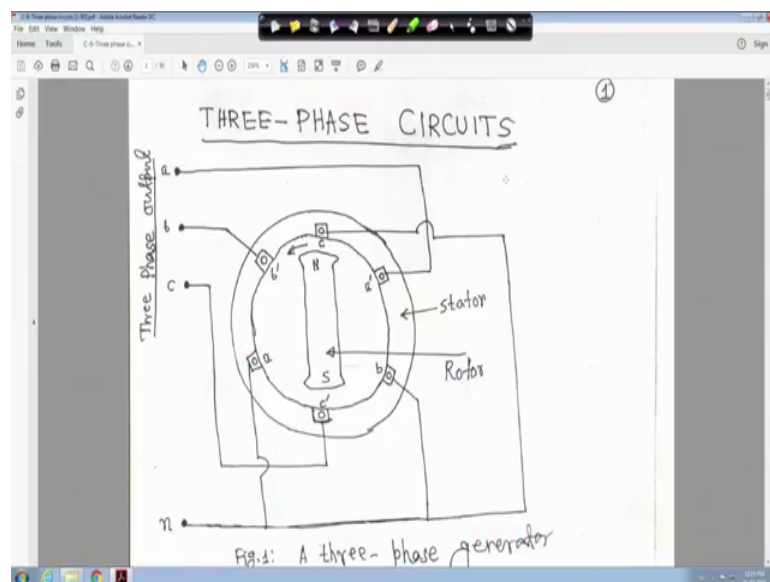 C-9-Three phase circuits (1-90).pdf - Adobe Acrobat Reader DC
File Edit View Window Help
Home Tools C-9-Three phase o... ×
Sign
1
THREE-PHASE CIRCUITS
Three Phase output
a
b
c
n
c
b'
a'
N
S
a
b
c'
stator
Rotor
Fig.1: A three-phase generator